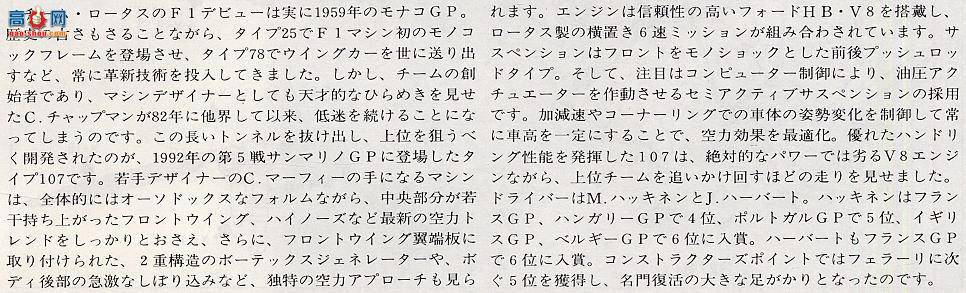 ・ロータスのF1デビューは実に1959年のモナコGP。
さもさることながら、タイプ25でF1マシン初のモノコ
ックフレームを登場させ、タイプ78でウイングカーを世に送り出
すなど、常に革新技術を投入してきました。しかし、チームの創
始者であり、マシンデザイナーとしても天才的なひらめきを見せ
たC.チャップマンが82年に他界して以来、低迷を続けることにな
ってしまうのです。この長いトンネルを抜け出し、上位を狙うべ
く開発されたのが、1992年の第5戦サンマリノGPに登場したタ
イプ107です。若手デザイナーのC.マーフィーの手になるマシン
は、全体的にはオーソドックスなフォルムながら、中央部分が若
干持ち上がったフロントウイング、ハイノーズなど最新の空力ト
レンドをしっかりとおさえ、さらに、フロントウイング翼端板に
取り付けられた、2重構造のボーテックスジェネレーターや、ボ
ディ後部の急激なしぼり込みなど、独特の空力アプローチも見ら
れます。エンジンは信頼性の高いフォードHB・V8を搭載し、
ロータス製の横置き6速ミッションが組み合わされています。サ
スペンションはフロントをモノショックとした前後プッシュロッ
ドタイプ。そして、注目はコンピューター制御により、油圧アク
チュエーターを作動させるセミアクティブサスペンションの採用
です。加減速やコーナーリングでの車体の姿勢変化を制御して常
に車高を一定にすることで、空力効果を最適化。優れたハンドリ
ング性能を発揮した107は、絶対的なパワーでは劣るV8エンジ
ンながら、上位チームを追いかけ回すほどの走りを見せました。
ドライバーはM.ハッキネンとJ.ハーバート。ハッキネンはフラン
スGP、ハンガリーGPで4位、ポルトガルGPで5位、イギリ
スGP、ベルギーGPで6位に入賞。ハーバートもフランスGP
で6位に入賞。コンストラクターズポイントではフェラーリに次
ぐ5位を獲得し、名門復活の大きな足がかりとなったのです。